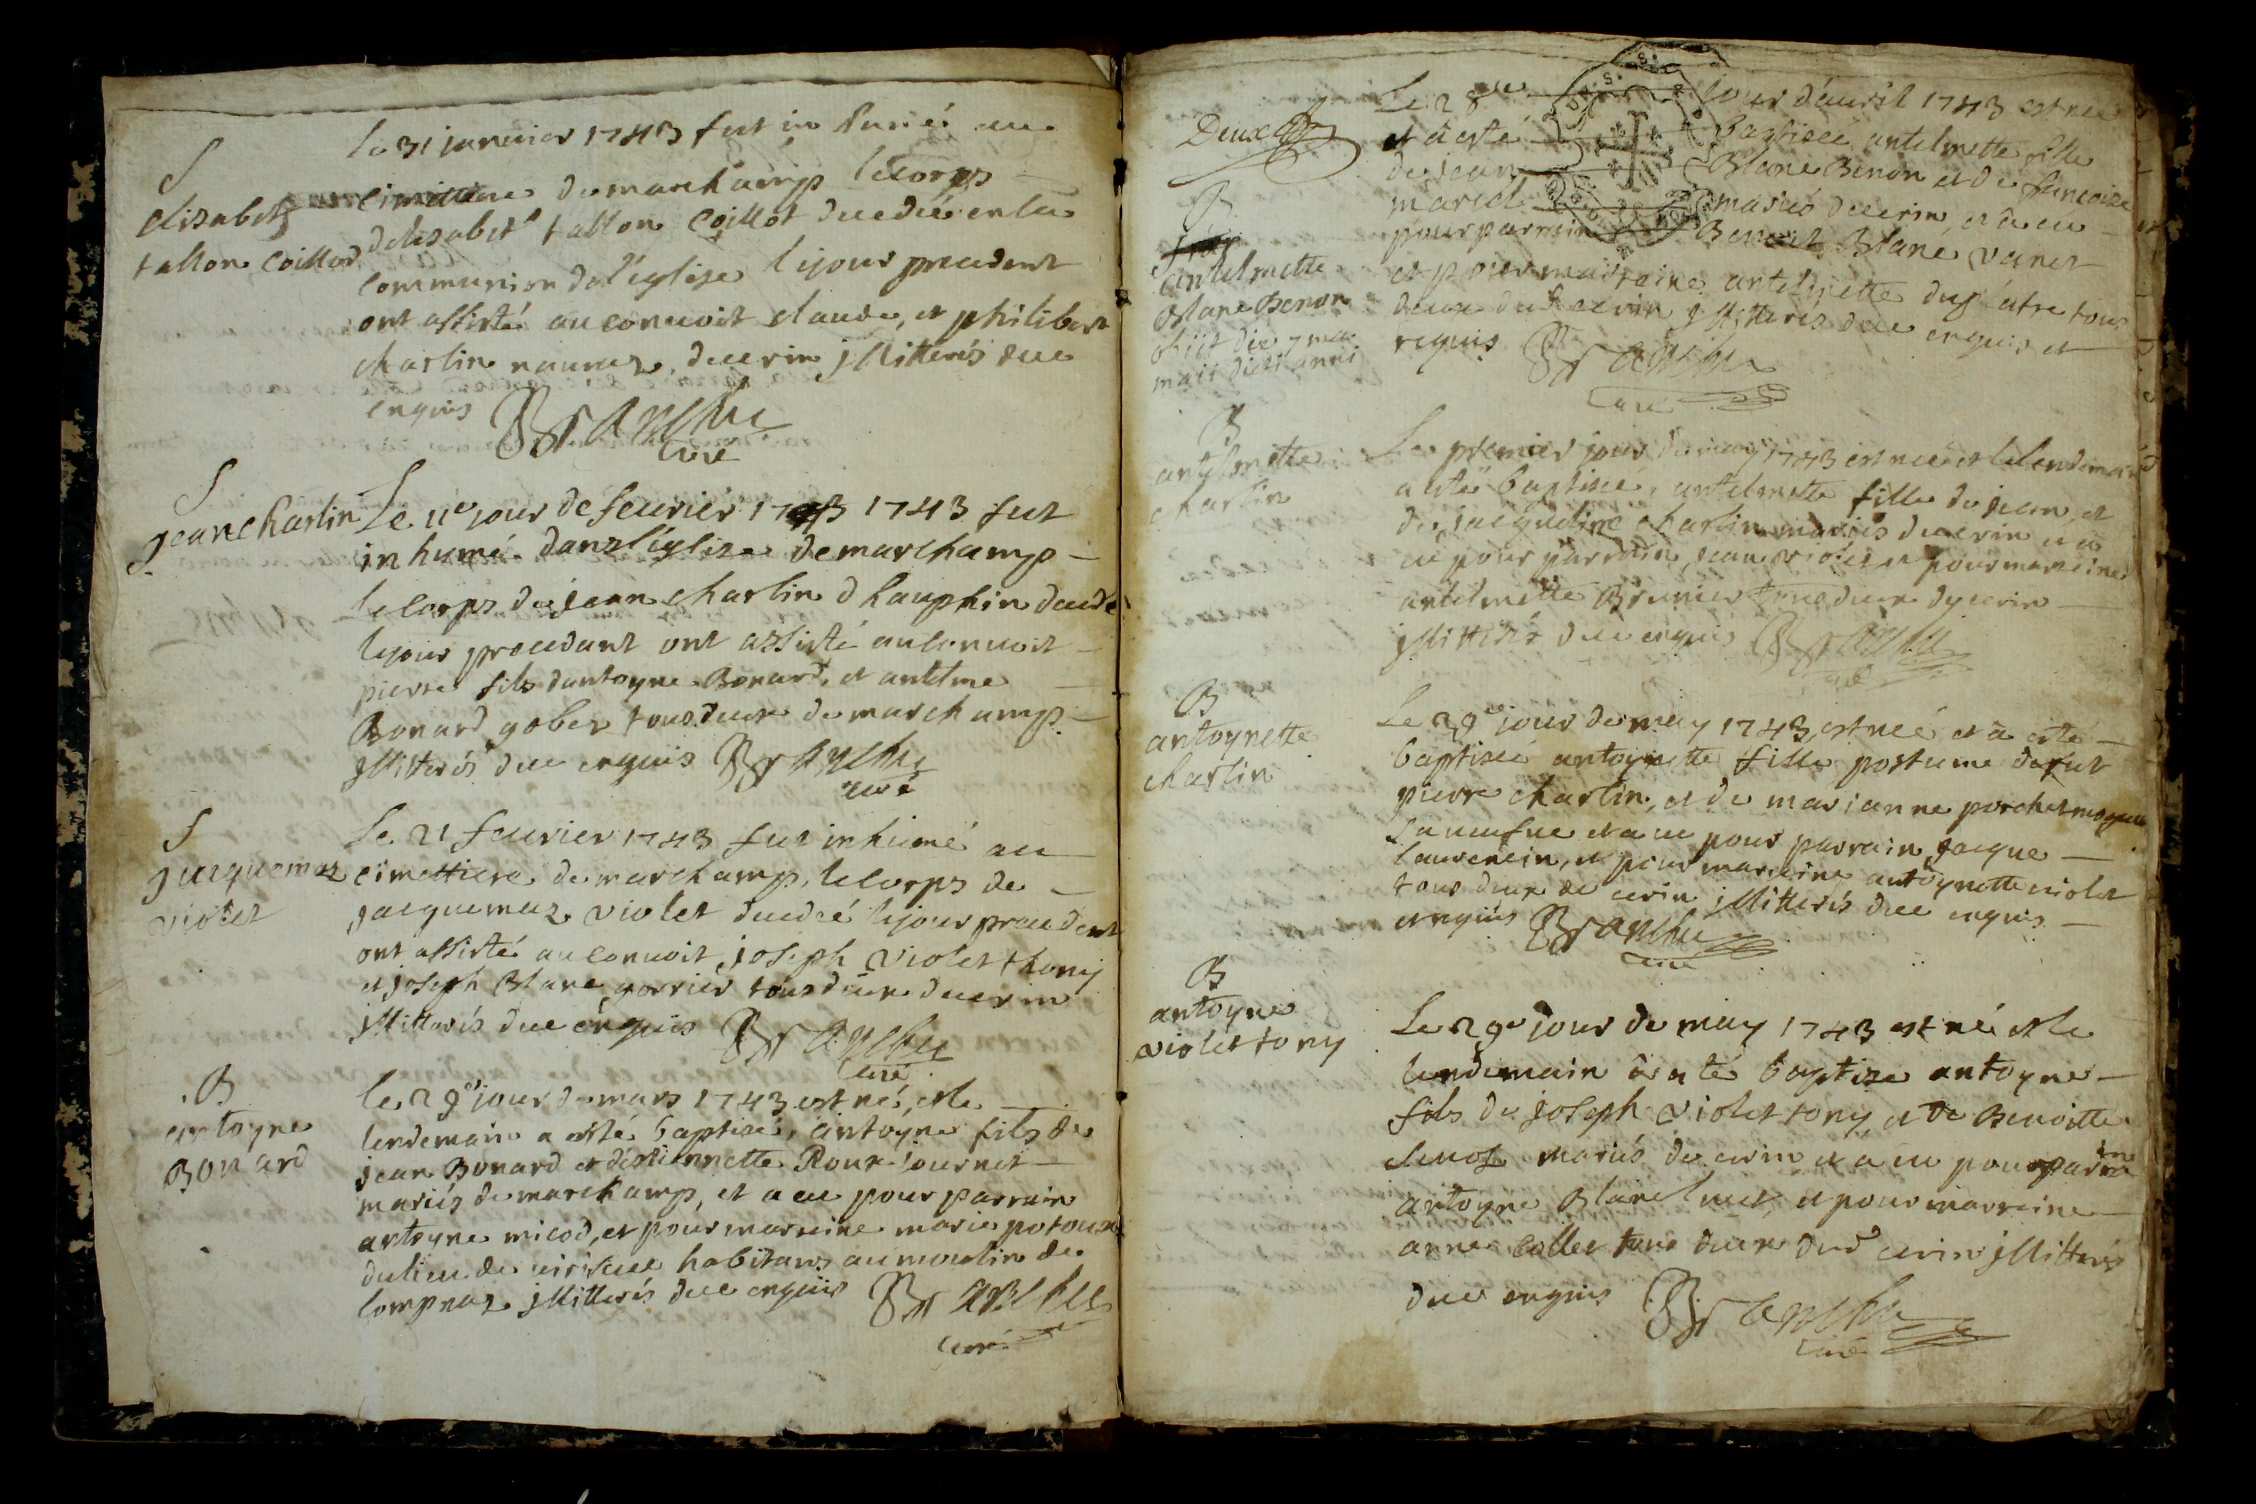 S
elisabeth
tallon coillod
Le 31 janvier 1743 fut in humé au
cimittiere de marchamp le corps
delisabeth tallon Coillot decedée en la
communion de l'église le jour precedent
ont assisté au convoit claude, et philibert
charlin naunaz, de cerin jllitterés de ce
enquis
curé
S
jean charlin
Le 11e jour de feuvriér 1743 fut
in humé. dans l'églize de marchamp
le corps de jean charlin dhauphin decedé
le jour precedant ont assisté au convoit
pierre fils dantoyne Bonard, et antelme
Bonard gober tous deux de marchamp
jllitterés de ce enquis
curé
S
jacquemaz
violet
Le 21 feuvrier 1743 fut inhumé au
cimettiere de marchamp, le corps de
jacquemaz violet decedée le jour precedent
ont assisté au convoit, joseph violet thony
et joseph Blanc gorrier tous deux de cerin
jllitterés de ce enquis
curé
B
antoyne
Bonard
le 29e jour de mars 1743 est né, et le
lendemain a esté baptisé, antoyne fils de
jean Bonard et destiennette Roux journet
mariés de marchamp, et a eu pour parrain
antoyne micod, et pour marreine marie potoux
du lieu de habitans au moulin de
lompnaz jllitterés de ce enquis
curé
Deux
B
antelmette
Blanc Benon
obiit die
maii dicti anni
Le 28me jour d'avril 1743 est née
et a esté baptisée antelmette fille
de jean Blanc Benon et de francoise
mariés de cerin et a eu
pour parrain Benoit Blanc vanet
et pour marraine antelmette tous
deux dud cerin jllitterés de ce enquis et
requis
curé
B
antelmette
charlin
Le premier jour de may 1743 est née et le lendemain
a esté baptisée, antelmette fille de jean, et
de jacqueline charlin mariés de cerin et a
eü pour parrain, jean violet et pour marreine
antelmette Brunier tous deux de cerin
jllitterés de ce enquis
curé
B
antoynette
charlin
Le 29e jour de may 1743, est née et a esté
baptisée antoynette fille postume de fut
pierre charlin, et de marianne porchet
sa veufve et a eu pour parrain, jacque
laurencin, et pour marreine antoynette violet
tous deux de cerin jllitterés de ce enquis
et requis
curé
B
antoyne
violet tony
Le 29e jour de may 1743 est né et le
lendemain a esté baptise antoyne
fils de joseph violet tony, et de Benoitte
mariés de cerin et a eu pour parrain
antoyne Blanc et pour marreine
anne collet tous deux dud cerin jllitterés
de ce enquis
curé